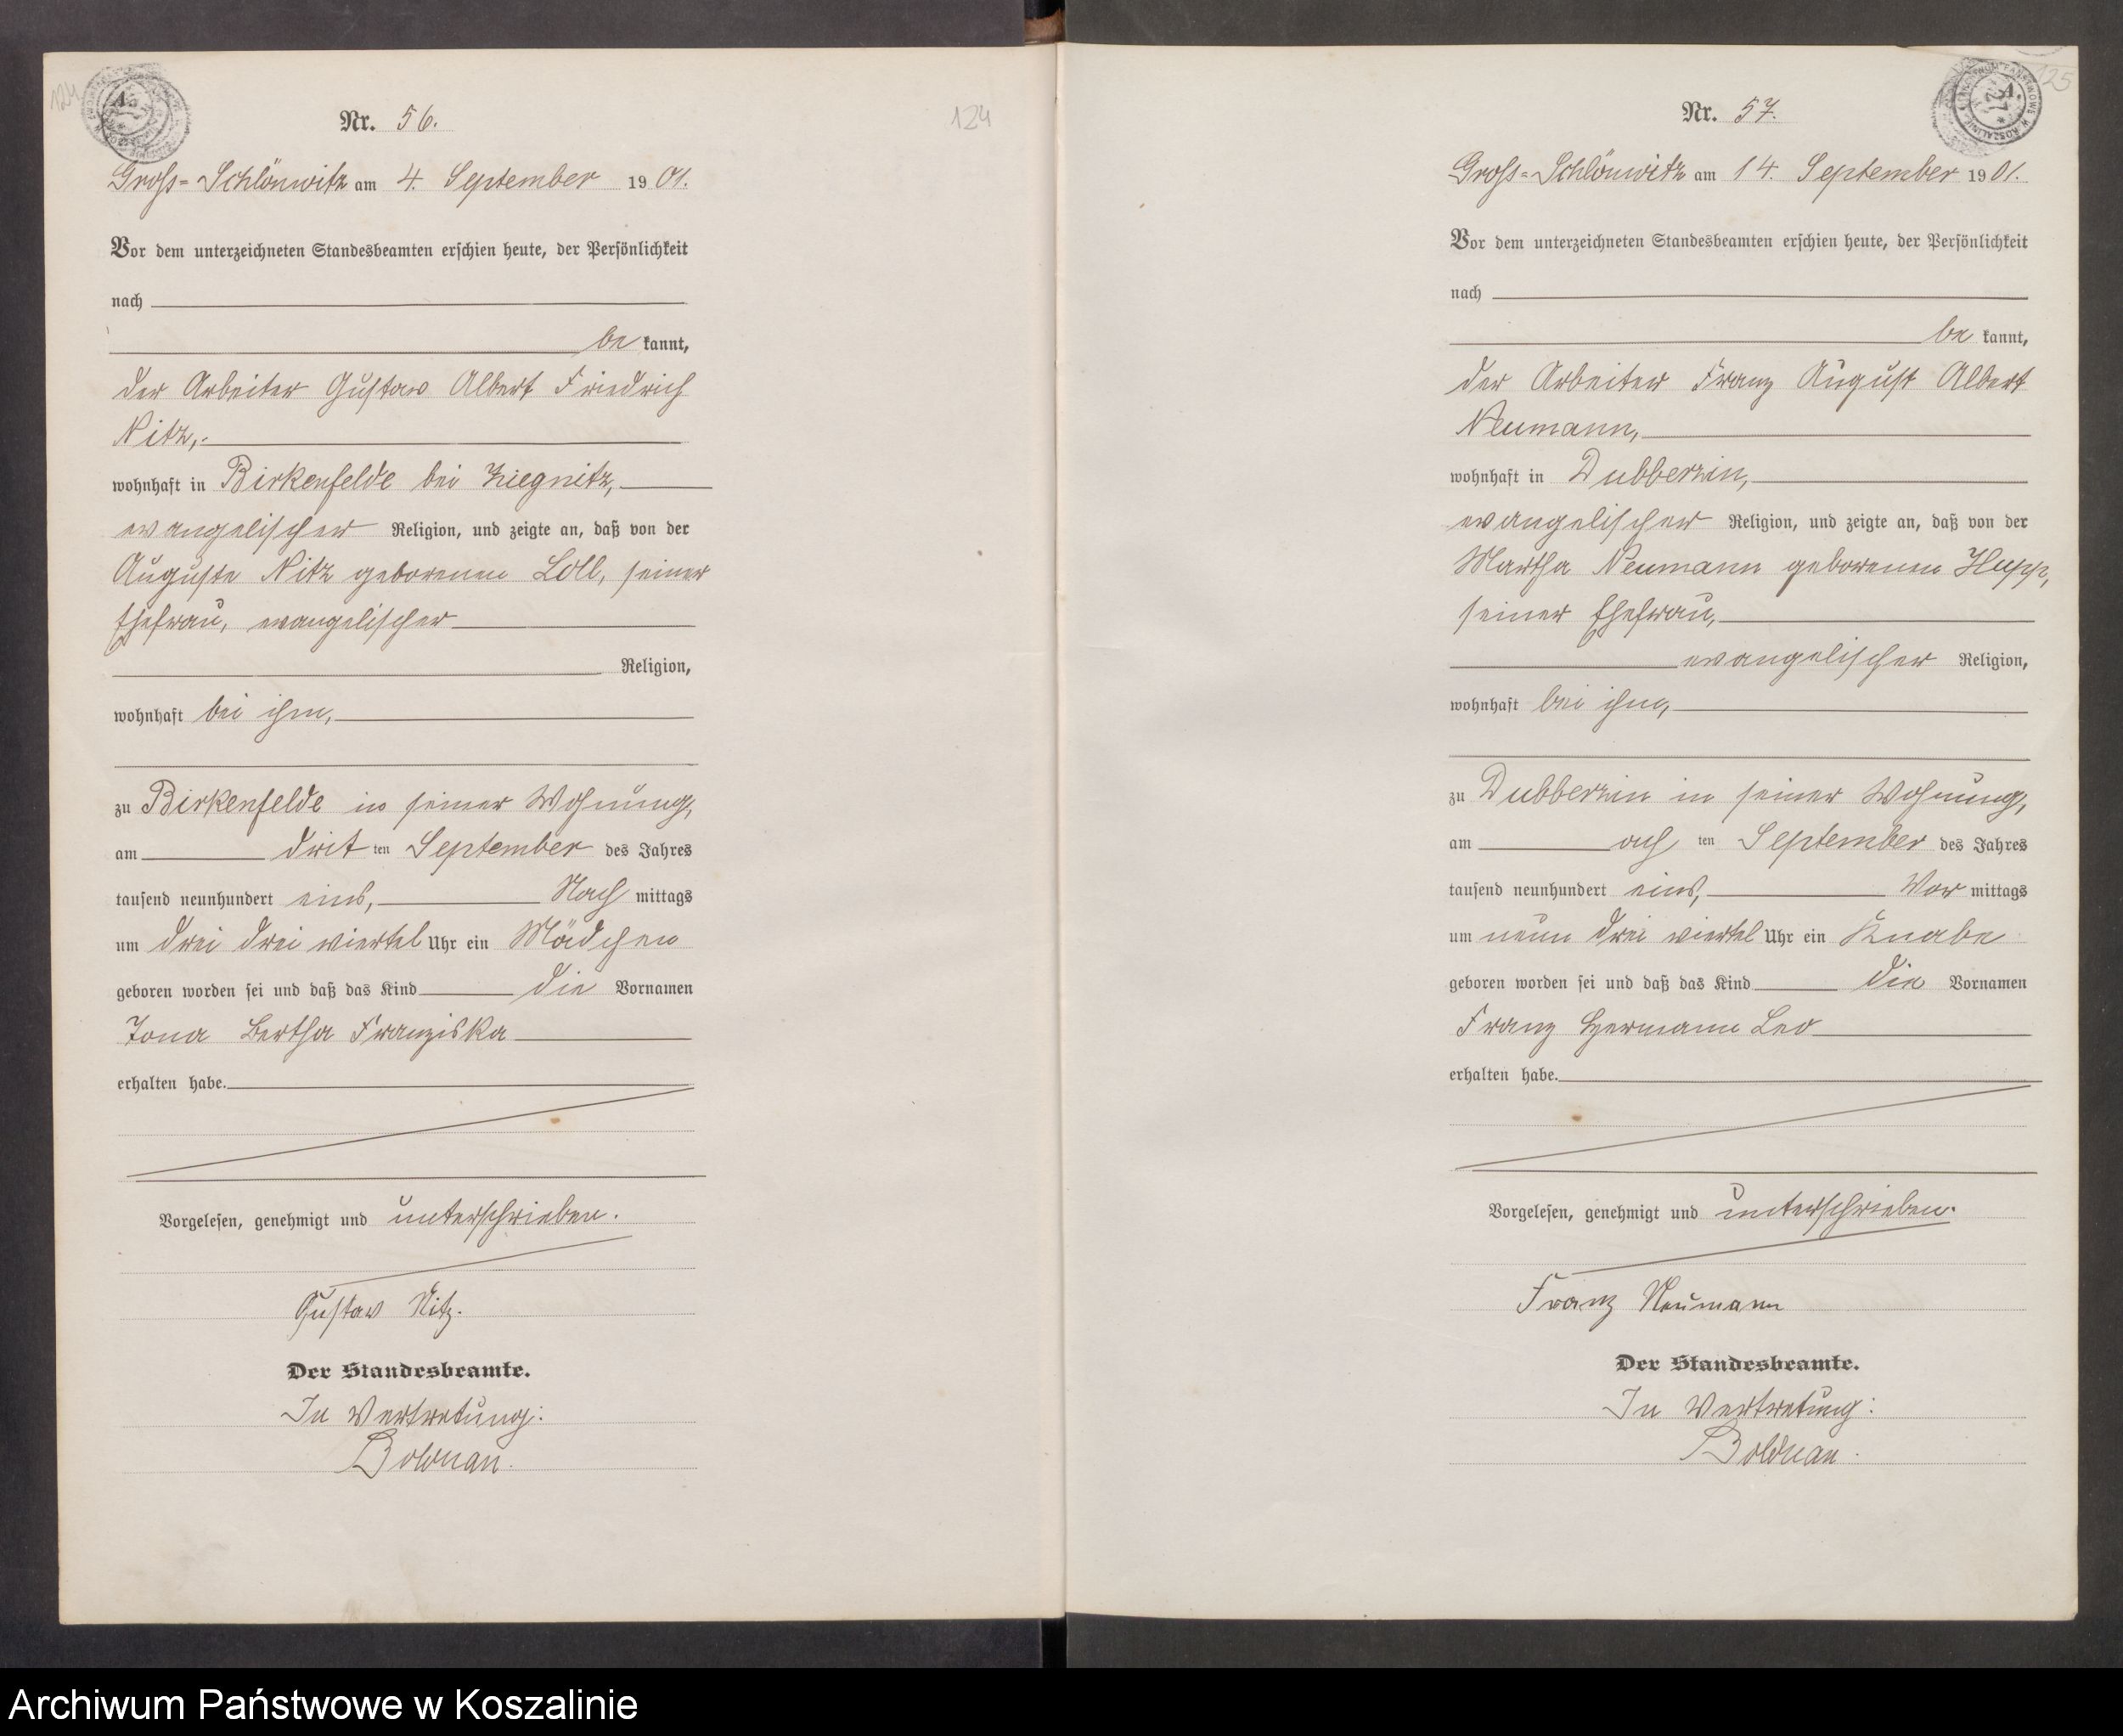 124
Nr. 56.
124
Gross-Schlönwitz am 4. September 1901.
Vor dem unterzeichneten Standesbeamten erschien heute, der Persönlichkeit
nach
be kannt,
der Arbeiter Gustav Albert Friedrich
Nitz,
wohnhaft in Birkenfelde bei
evangelischer Religion, und zeigte an, daß von der
Auguste Nitz geborenen Loll, seiner
Ehefrau, evangelischer
Religion,
wohnhaft bei ihm,
zu Birkenfelde in seiner Wohnung,
am dritten September des Jahres
tausend neunhundert eins, Nach mittags
um drei drei viertel Uhr ein Mädchen
geboren worden sei und daß das Kind die Vornamen
Bertha Franziska
erhalten habe.
Vorgelesen, genehmigt und unterschrieben.
Gustav Nitz.
Der Standesbeamte.
In Vertretung:
Bolduan.
125
Nr. 57.
Gross-Schlönwitz am 14. September 1901.
Vor dem unterzeichneten Standesbeamten erschien heute, der Persönlichkeit
nach
be kannt,
der Arbeiter Franz August Albert
Neumann,
wohnhaft in Dubberzin,
evangelischer Religion, und zeigte an, daß von der
Martha Neumann geborenen Hupp,
seiner Ehefrau,
evangelischer Religion,
wohnhaft bei ihm,
zu Dubberzin in seiner Wohnung,
am ach ten September des Jahres
tausend neunhundert eins, Vor mittags
um neun drei viertel Uhr ein Knabe
geboren worden sei und daß das Kind die Vornamen
Franz Hermann Leo
erhalten habe.
Vorgelesen, genehmigt und unterschrieben.
Franz Neumann
Der Standesbeamte.
In Vertretung:
Bolduan.
Archiwum Państwowe w Koszalinie